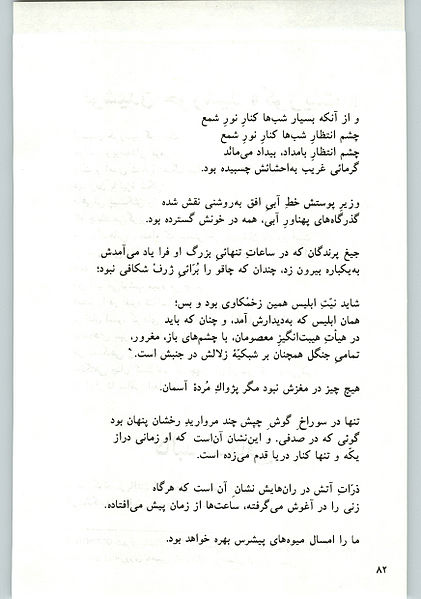 و از آنکه بسیار شب‌ها کنارِ نورِ شمع
چشم انتظارِ شب‌ها کنارِ نورِ شمع
چشم انتظارِ بامداد، بیداد می‌مائد
گرمائی غریب به‌احشائش چسبیده بود.
وزیرِ پوستش خطِ آبیِ افق به‌روشنی نقش شده
گذرگاه‌های پهناورِ آبی، همه در خونش گسترده بود.
جیغ پرندگان که در ساعاتِ تنهائیِ بزرگِ او فرا یاد می‌آمدش
به‌یکباره بیرون زد، چندان که چاقو را بُرّائیِ ژرفْ شکافی نبود؛
شاید نیّتِ ابلیس همین زخمْکاوی بود و بس؛
همان ابلیس که به‌دیدارش آمد، و چنان که باید
در هیأتِ هیبت‌انگیزِ معصومان، با چشم‌های باز، مغرور،
تمامیِ جنگل همچنان بر شبکیّهٔ زلالش در جنبش است.
هیچ چیز در مغزش نبود مگر پژواکِ مُردهٔ آسمان.
تنها در سوراخِ گوشِ چپش چند مرواریدِ رخشان پنهان بود
گوئی که در صدفی. و این‌نشان آن‌است که او زمانی دراز
یکّه و تنها کنار دریا قدم می‌زده است.
ذرّاتِ آتش در ران‌هایش نشانِ آن است که هرگاه
زنی را در آغوش می‌گرفته، ساعت‌ها از زمان پیش می‌افتاده.
ما را امسال میوه‌های پیشرس بهره خواهد بود.
۸۲